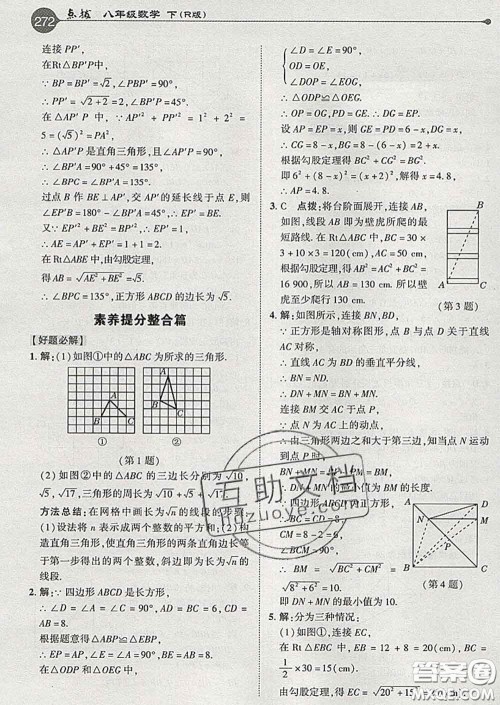 272 点拨 八年级数学 下(R版)
连接 PP′,
在Rt△BP′P中,
∵ BP = BP′ = √2, ∠PBP′ = 90°,
∴ PP′ = √(2+2) = 2, ∠BP′P = 45°.
在△AP′P 中, AP′² + PP′² = 1² + 2² =
5 = (√5)² = PA²,
∴ △AP′P 是直角三角形,且∠AP′P = 90°.
∴ ∠BP′A = 90° + 45° = 135°.
∴ ∠BPC = ∠BP′A = 135°.
过点 B 作 BE⊥AP′,交 AP′的延长线于点 E,
则∠EP′B = 180° - ∠AP′B = 45°.
又∵ EP′² + EB² = BP′², ∴ EP′ = EB = 1.
∴ AE = AP′ + EP′ = 1 + 1 = 2.
在 Rt△ABE 中,由勾股定理,
得 AB = √(AE² + BE²) = √5.
∴ ∠BPC = 135°,正方形 ABCD 的边长为 √5.
素养提分整合篇
【好题必解】
1. 解:(1)如图①中的△ABC 为所求的三角形.
A
B
C
①
A
B
C
②
(第 1 题)
(2)如图②中的△ABC 的三边长分别为 √10,
√5, √17,三角形的面积为
方法总结:在网格中画长为 √n 的线段的步骤:
(1)设法将 n 表示成两个整数的平方和;(2)构
造直角三角形,使直角三角形的两条直角边长等
于第一步得出的两个整数,斜边即为长为√n的
线段.
2. 解:∵ 四边形 ABCD 是长方形,
∴ ∠D = ∠A = ∠C = 90°,
根据题意得△ABP≌△EBP,
∴ EP = AP, ∠E = ∠A = 90°, BE = AB = 8.
在△ODP 和△OEG 中,
∠D = ∠E,
OD = OE,
∠DOP = ∠EOG,
∴ △ODP≌△OEG.
∴ OP = OG, PD = GE. ∴ DG = EP.
设 AP = EP = x,则 GE = PD = 6 - x, DG = x,
∴ CG = 8 - x, BG = 8 - (6 - x) = 2 + x.
根据勾股定理得 BC² + CG² = BG²,
即 6² + (8 - x)² = (x + 2)²,解得 x = 4.8.
∴ AP = 4.8.
3. C 点拨:将台阶面展开,连接 AB,
如图,线段 AB 即为壁虎所爬的最
短路线. 在 Rt△ABC 中, BC = 30 ×
3 + 10 × 3 = 120(cm), AC = 50 cm,
根据勾股定理,得 AB² = AC² + BC² =
16 900,所以 AB = 130 cm. 所以壁
虎至少爬行 130 cm.
(第 3 题)
4. 解:如图所示,连接 BN, BD,
∵ 正方形是轴对称图形,点 B 与点 D 关于直线
AC 对称,
∴ DN = BN.
连接 BM 交 AC 于点 P,
∵ 点 N 为 AC 上的动点,
∴ 由三角形两边之和大于第三边,知当点 N 运动
到点 P 时,
BN + MN = BP + PM = BM,
∴ DN + MN 的最小值为 BM 的长度.
∵ 四边形 ABCD 为正方形,
∴ BC = CD = 8,
∠BCM = 90°,
∴ BM = √(BC² + CM²) =
√(8² + 6²) = 10.
即 DN + MN 的最小值为 10.
A
D
N
M
P
B
C
(第 4 题)
5. 解:分为三种情况:
(1)如图①,连接 EC,在 Rt△EBC 中, EB =
½ × 30 = 15(cm).
互助文档
hdzuoye.com
答案圈
MXQE.COM